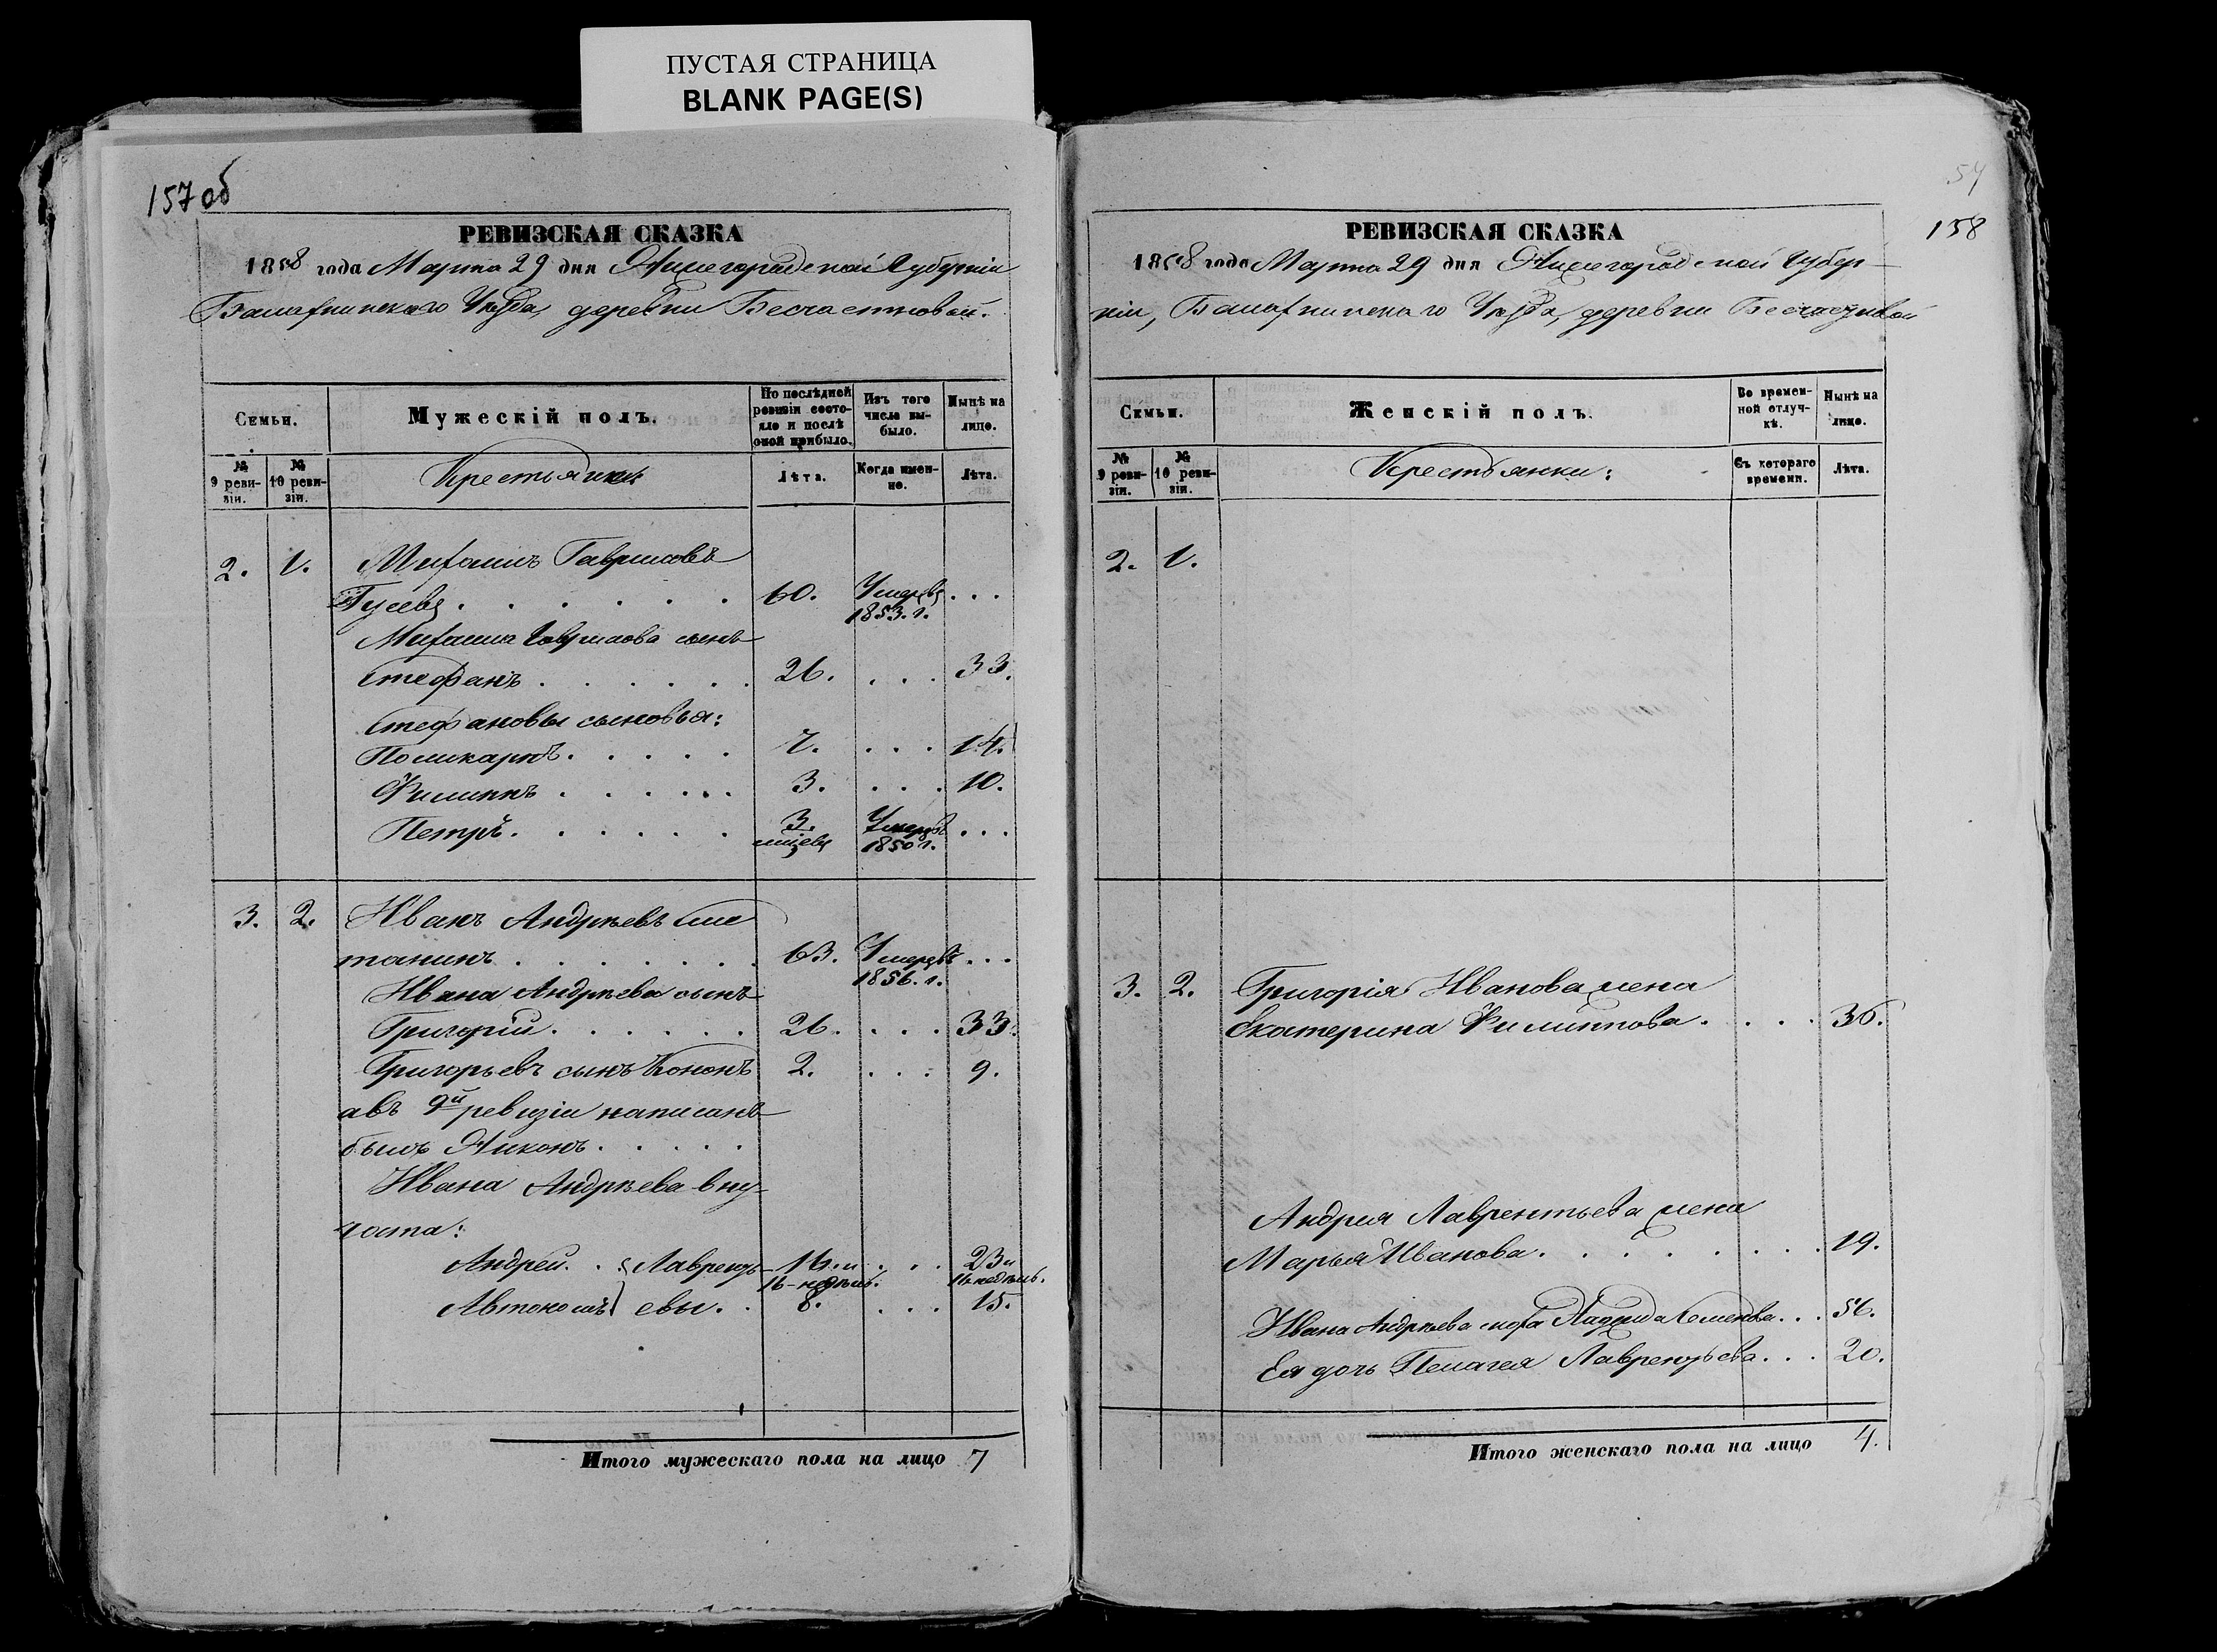 ПУСТАЯ СТРАНИЦА
BLANK PAGE(S)
157 об
РЕВИЗСКАЯ СКАЗКА
1858 года Марта 29 дня Нижегородской Губерніи
Балахнинскаго Уѣзда, деревни Безчастновой.
Семьи.
Мужескій полъ.
По послѣдней ревизіи состояло и послѣ оной прибыло.
Изъ того числа выбыло.
Нынѣ на лицо.
№ 9 ревизіи.
№ 10 ревизіи.
Крестьяне
Лѣта.
Когда именно.
Лѣта.
2. 1. Михаилъ Гавриловъ
Гусевъ . . . . . . 60. Умеръ 1853. г. . . .
Михаила Гаврилова сынъ
Стефанъ . . . . . . 26. . . . 33.
Стефановы сыновья:
Поликарпъ . . . . . 7. . . . 14.
Филиппъ . . . . . . 3. . . . 10.
Петръ . . . . . . 3. мѣсяц Умеръ 1850 г. . . .
3. 2. Иванъ Андреевъ Сме
танинъ . . . . . . . 63. Умеръ 1856. г. . . .
Ивана Андреева сынъ
Григорій . . . . . . 26. . . . 33.
Григорьевъ сынъ Кононъ 2. . . . 9.
а въ 9й ревизіи написанъ
былъ Никонъ . . . . .
Ивана Андреева вну-
чата:
Андрей . . Лаврентъ- 16 и 16-недѣль. . . . 23 и 16 недѣль.
Автономъ евы . . 8. . . . 15.
Итого мужескаго пола на лицо 7
54
158
РЕВИЗСКАЯ СКАЗКА
1858 года Марта 29 дня Нижегородской Губер-
ніи, Балахнинскаго Уѣзда, деревни Безчастновой
Семьи.
Женскій полъ.
Во временной отлучкѣ.
Нынѣ на лицо.
№ 9 ревизіи.
№ 10 ревизіи.
Крестьянки:
Съ котораго времени.
Лѣта.
2. 1.
3. 2. Григорія Иванова жена
Екатерина Филиппова . . . . 36.
Андрея Лаврентьева жена
Марья Иванова . . . . . . . . 19.
Ивана Андреева сноха Надежда Семенова . . . 56.
Ея дочь Пелагея Лаврентьева . . . 20.
Итого женскаго пола на лицо 4.